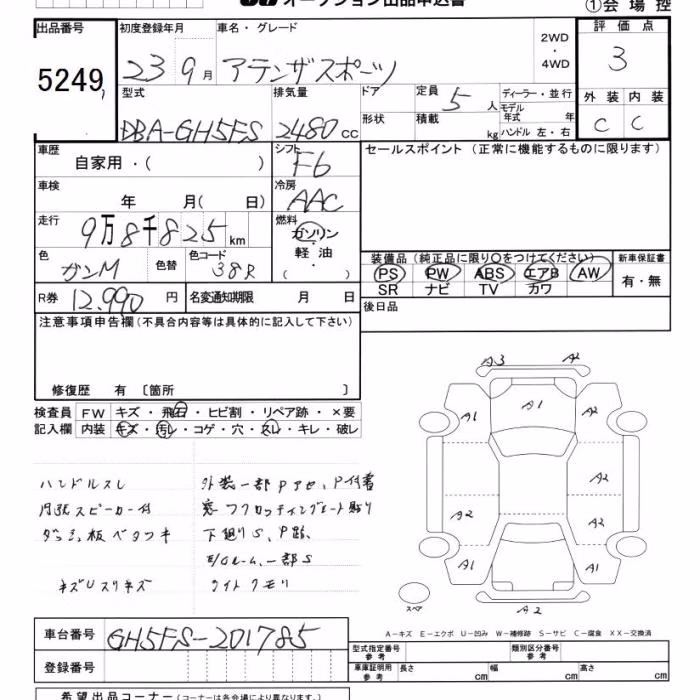 オークション出品申込書
①会場控
出品番号 5249
初度登録年月 23 9月
車名・グレード アテンザスポーツ
2WD・4WD
評価点 3
型式 DBA-GH5FS
排気量 2480cc
ドア
形状
定員 5人
積載 kg
ディーラー・並行
モデル年式 年
ハンドル 左・右
外装 C
内装 C
車歴 自家用・( )
シフト F6
セールスポイント (正常に機能するものに限ります)
車検 年 月( 日)
冷房 AAC
走行 9万8千825km
燃料 ガソリン・軽油 ( ・ )
色 ガンM
色替
色コード 38R
装備品 (純正品に限り○をつけてください)
PS PW ABS エアB AW
SR ナビ TV カワ
新車保証書 有・無
R券 12,990円
名変通知期限 月 日
後日品
注意事項申告欄 (不具合内容等は具体的に記入して下さい)
修復歴 有 〔箇所 〕
検査員記入欄
FW キズ・飛石・ヒビ割・リペア跡・×要
内装 キズ・汚レ・コゲ・穴・スレ・キレ・破レ
ハンドルスレ
スピーカー付
ダッシュ板ベタツキ
キズUスリキズ
外装一部Pアセ、P付着
下廻りS、P跡、
一部S
ライトクモリ
A3 A2
A1 A1 A2
A2
A2 A2
A1 A1
A2
スペア
A-キズ E-エクボ U-凹み W-補修跡 S-サビ C-腐食 XX-交換済
車台番号 GH5FS-201785
型式指定番号 参考
類別区分番号 参考
登録番号
車庫証明用 参考 長さ cm 幅 cm 高さ cm
希望出品コーナー (コーナーは各会場により異なります)